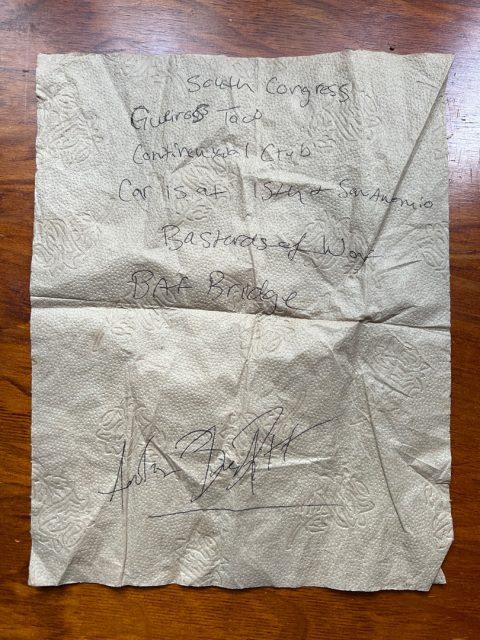 South Congress
Gueros Taco
Continental Club
Car is at 15th & San Antonio
Bastards of War
BAT Bridge